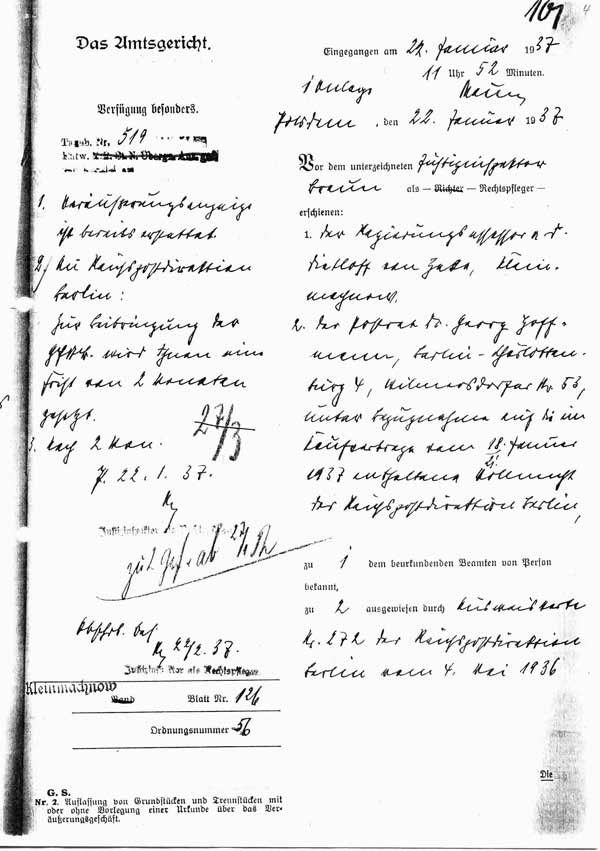 107
4
Das Amtsgericht.
Verfügung besonders.
Tageb. Nr. 519
Entw.
1. Veräußerungsanzeige
ist bereits erstattet.
2.) An Reichspostdirektion
Berlin:
Zur Beibringung der
wird Ihnen eine
Frist von 2 Monaten
gesetzt.
27/3
3. Nach 2 Mon.
P. 22. 1. 37.
Justizinspektor
Abschr. bes.
22/2. 37.
Justizinspektor als Rechtspfleger
Kleinmachnow
Band Blatt Nr. 126
Ordnungsnummer 56
G. S.
Nr. 2. Auflassung von Grundstücken und Trennstücken mit
oder ohne Vorlegung einer Urkunde über das Ver-
äußerungsgeschäft.
Eingegangen am 22. Januar 1937
11 Uhr 52 Minuten.
1 Anlage
Braun
Potsdam, den 22. Januar 1937
Vor dem unterzeichneten Justizinspektor
Braun als — Richter — Rechtspfleger —
erschienen:
1. der Regierungsassessor a. D.
Dietloff von Hake, Klein-
machnow,
2. der Postrat Dr. Georg Hoff-
mann, Berlin-Charlotten-
burg 4, Wilmersdorfer Str. 53,
unter Bezugnahme auf die im
Kaufvertrage vom 18. Januar
21.
1937 enthaltene Vollmacht
der Reichspostdirektion Berlin,
zu 1 dem beurkundenden Beamten von Person
bekannt,
zu 2 ausgewiesen durch Ausweiskarte
Nr. 272 der Reichspostdirektion
Berlin vom 4. Mai 1936
Die